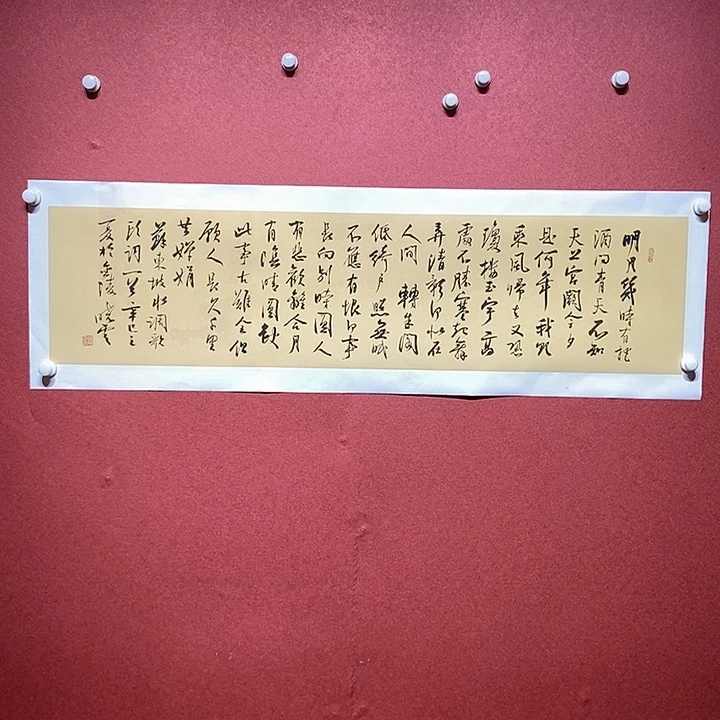 明月幾時有把
酒问青天不知
天上宫闕今夕
是何年我欲
乘風歸去又恐
瓊樓玉宇高
處不勝寒起舞
弄清影何似在
人間轉朱閣
低綺户照無眠
不應有恨何事
長向别時圆人
有悲歡離合月
有陰晴圆缺
此事古難全但
願人長久千里
共嬋娟
蘇東坡水調歌
頭詞一首辛巳之
夏於金陵曉雲